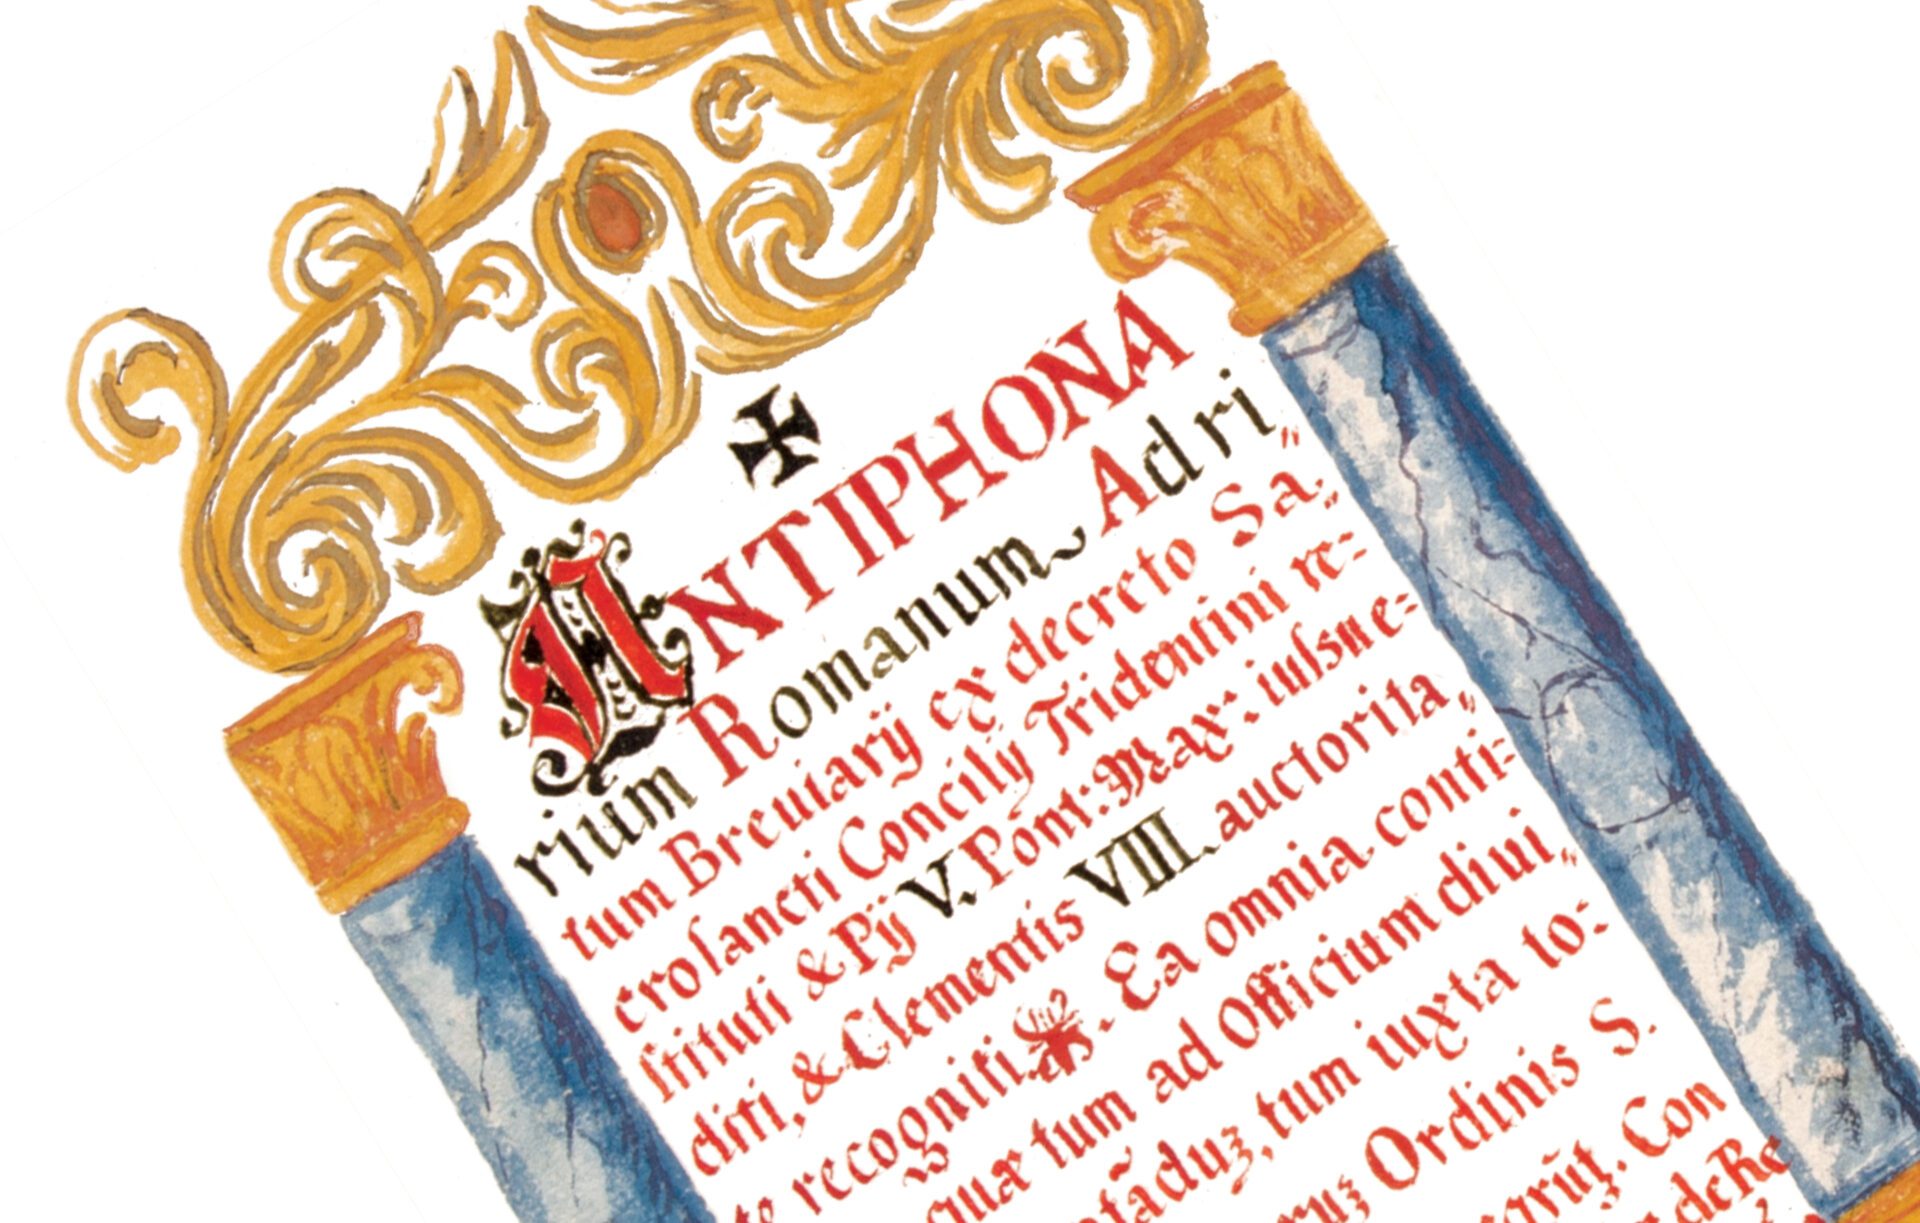 ✠
ANTIPHONA
rium Romanum Adri„
tum Breuiarij ex decreto Sa„
croſancti Concilij Tridentini re-
ſtituti & Pij V. Pont: Max: iuſsu e-
diti, & Clementis VIII. auctorita„
te recogniti. Ea omnia conti-
quæ tum ad Officium diui„
tãduʒ, tum iuxta to-
Ordinis S.
Con